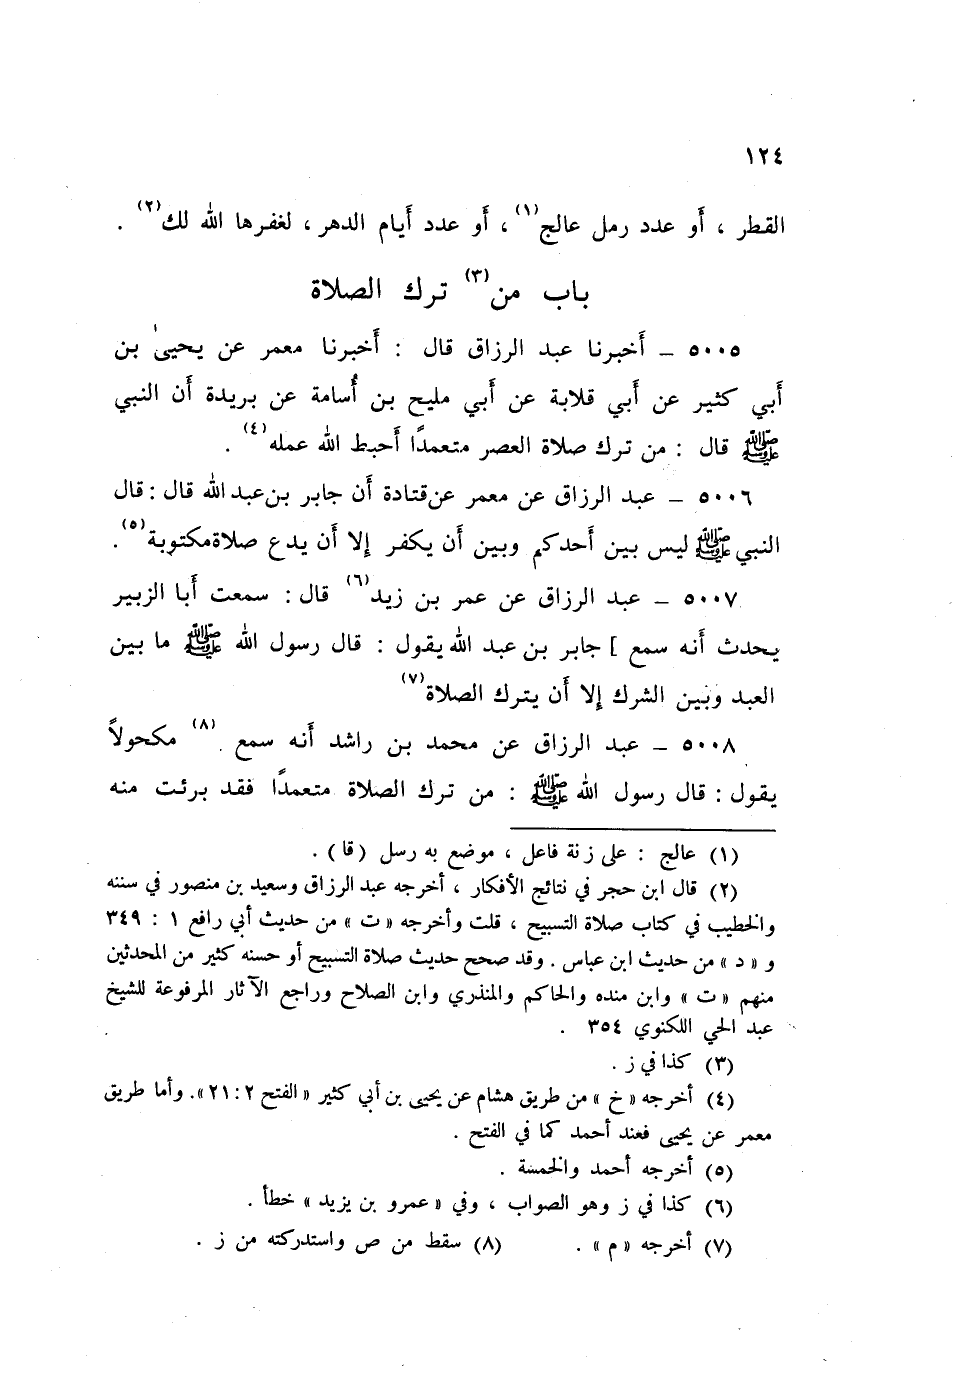 ١٢٤
القطر ، أو عدد رمل عالج(١)، أو عدد أيام الدهر ، لغفرها الله لك(٢) .
باب من(٣) ترك الصلاة
٥٠٠٥ ــ أخبرنا عبد الرزاق قال : أخبرنا معمر عن يحيىٰ بن
أبي كثير عن أبي قلابة عن أبي مليح بن أُسامة عن بريدة أن النبي
ﷺ قال : من ترك صلاة العصر متعمدًا أحبط الله عمله(٤) .
٥٠٠٦ ــ عبد الرزاق عن معمر عن قتادة أن جابر بن عبد الله قال : قال
النبي ﷺ ليس بين أحدكم وبين أن يكفر إلا أن يدع صلاة مكتوبة(٥).
٥٠٠٧ ــ عبد الرزاق عن عمر بن زيد(٦) قال : سمعت أبا الزبير
يحدث أنه سمع ] جابر بن عبد الله يقول : قال رسول الله ﷺ ما بين
العبد وبين الشرك إلا أن يترك الصلاة(٧)
٥٠٠٨ ــ عبد الرزاق عن محمد بن راشد أنه سمع (٨) مكحولاً
يقول : قال رسول الله ﷺ : من ترك الصلاة متعمدًا فقد برئت منه
(١) عالج : على زنة فاعل ، موضع به رسل (قا) .
(٢) قال ابن حجر في نتائج الأفكار ، أخرجه عبد الرزاق وسعيد بن منصور في سننه
والخطيب في كتاب صلاة التسبيح ، قلت وأخرجه « ت » من حديث أبي رافع ١ : ٣٤٩
و « د » من حديث ابن عباس . وقد صحح حديث صلاة التسبيح أو حسنه كثير من المحدثين
منهم « ت » وابن منده والحاكم والمنذري وابن الصلاح وراجع الآثار المرفوعة للشيخ
عبد الحي اللكنوي ٣٥٤ .
(٣) كذا في ز .
(٤) أخرجه « خ » من طريق هشام عن يحيى بن أبي كثير « الفتح ٢ : ٢١ ». وأما طريق
معمر عن يحيى فعند أحمد كما في الفتح .
(٥) أخرجه أحمد والخمسة .
(٦) كذا في ز وهو الصواب ، وفي « عمرو بن يزيد » خطأ .
(٧) أخرجه « م » . (٨) سقط من ص واستدركته من ز .